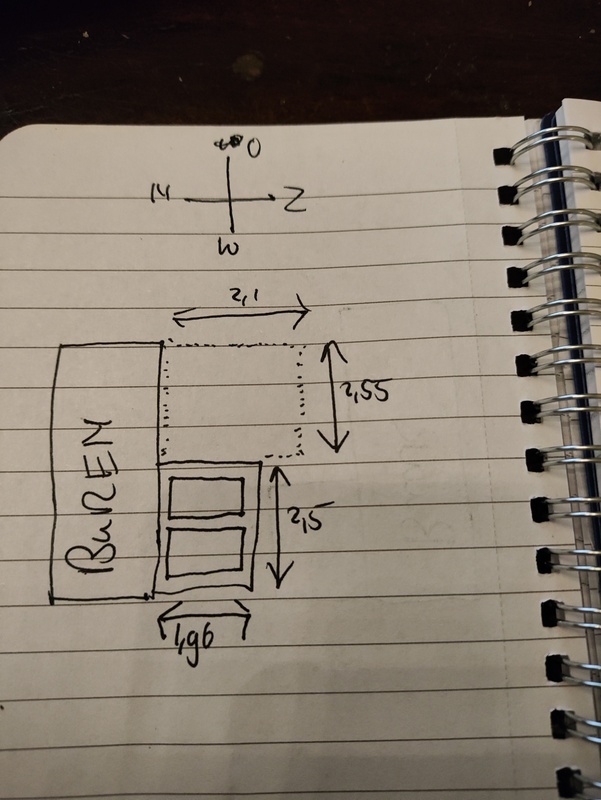 O
N Z
W
2,1
2,55
BUREN
2,5
1,96